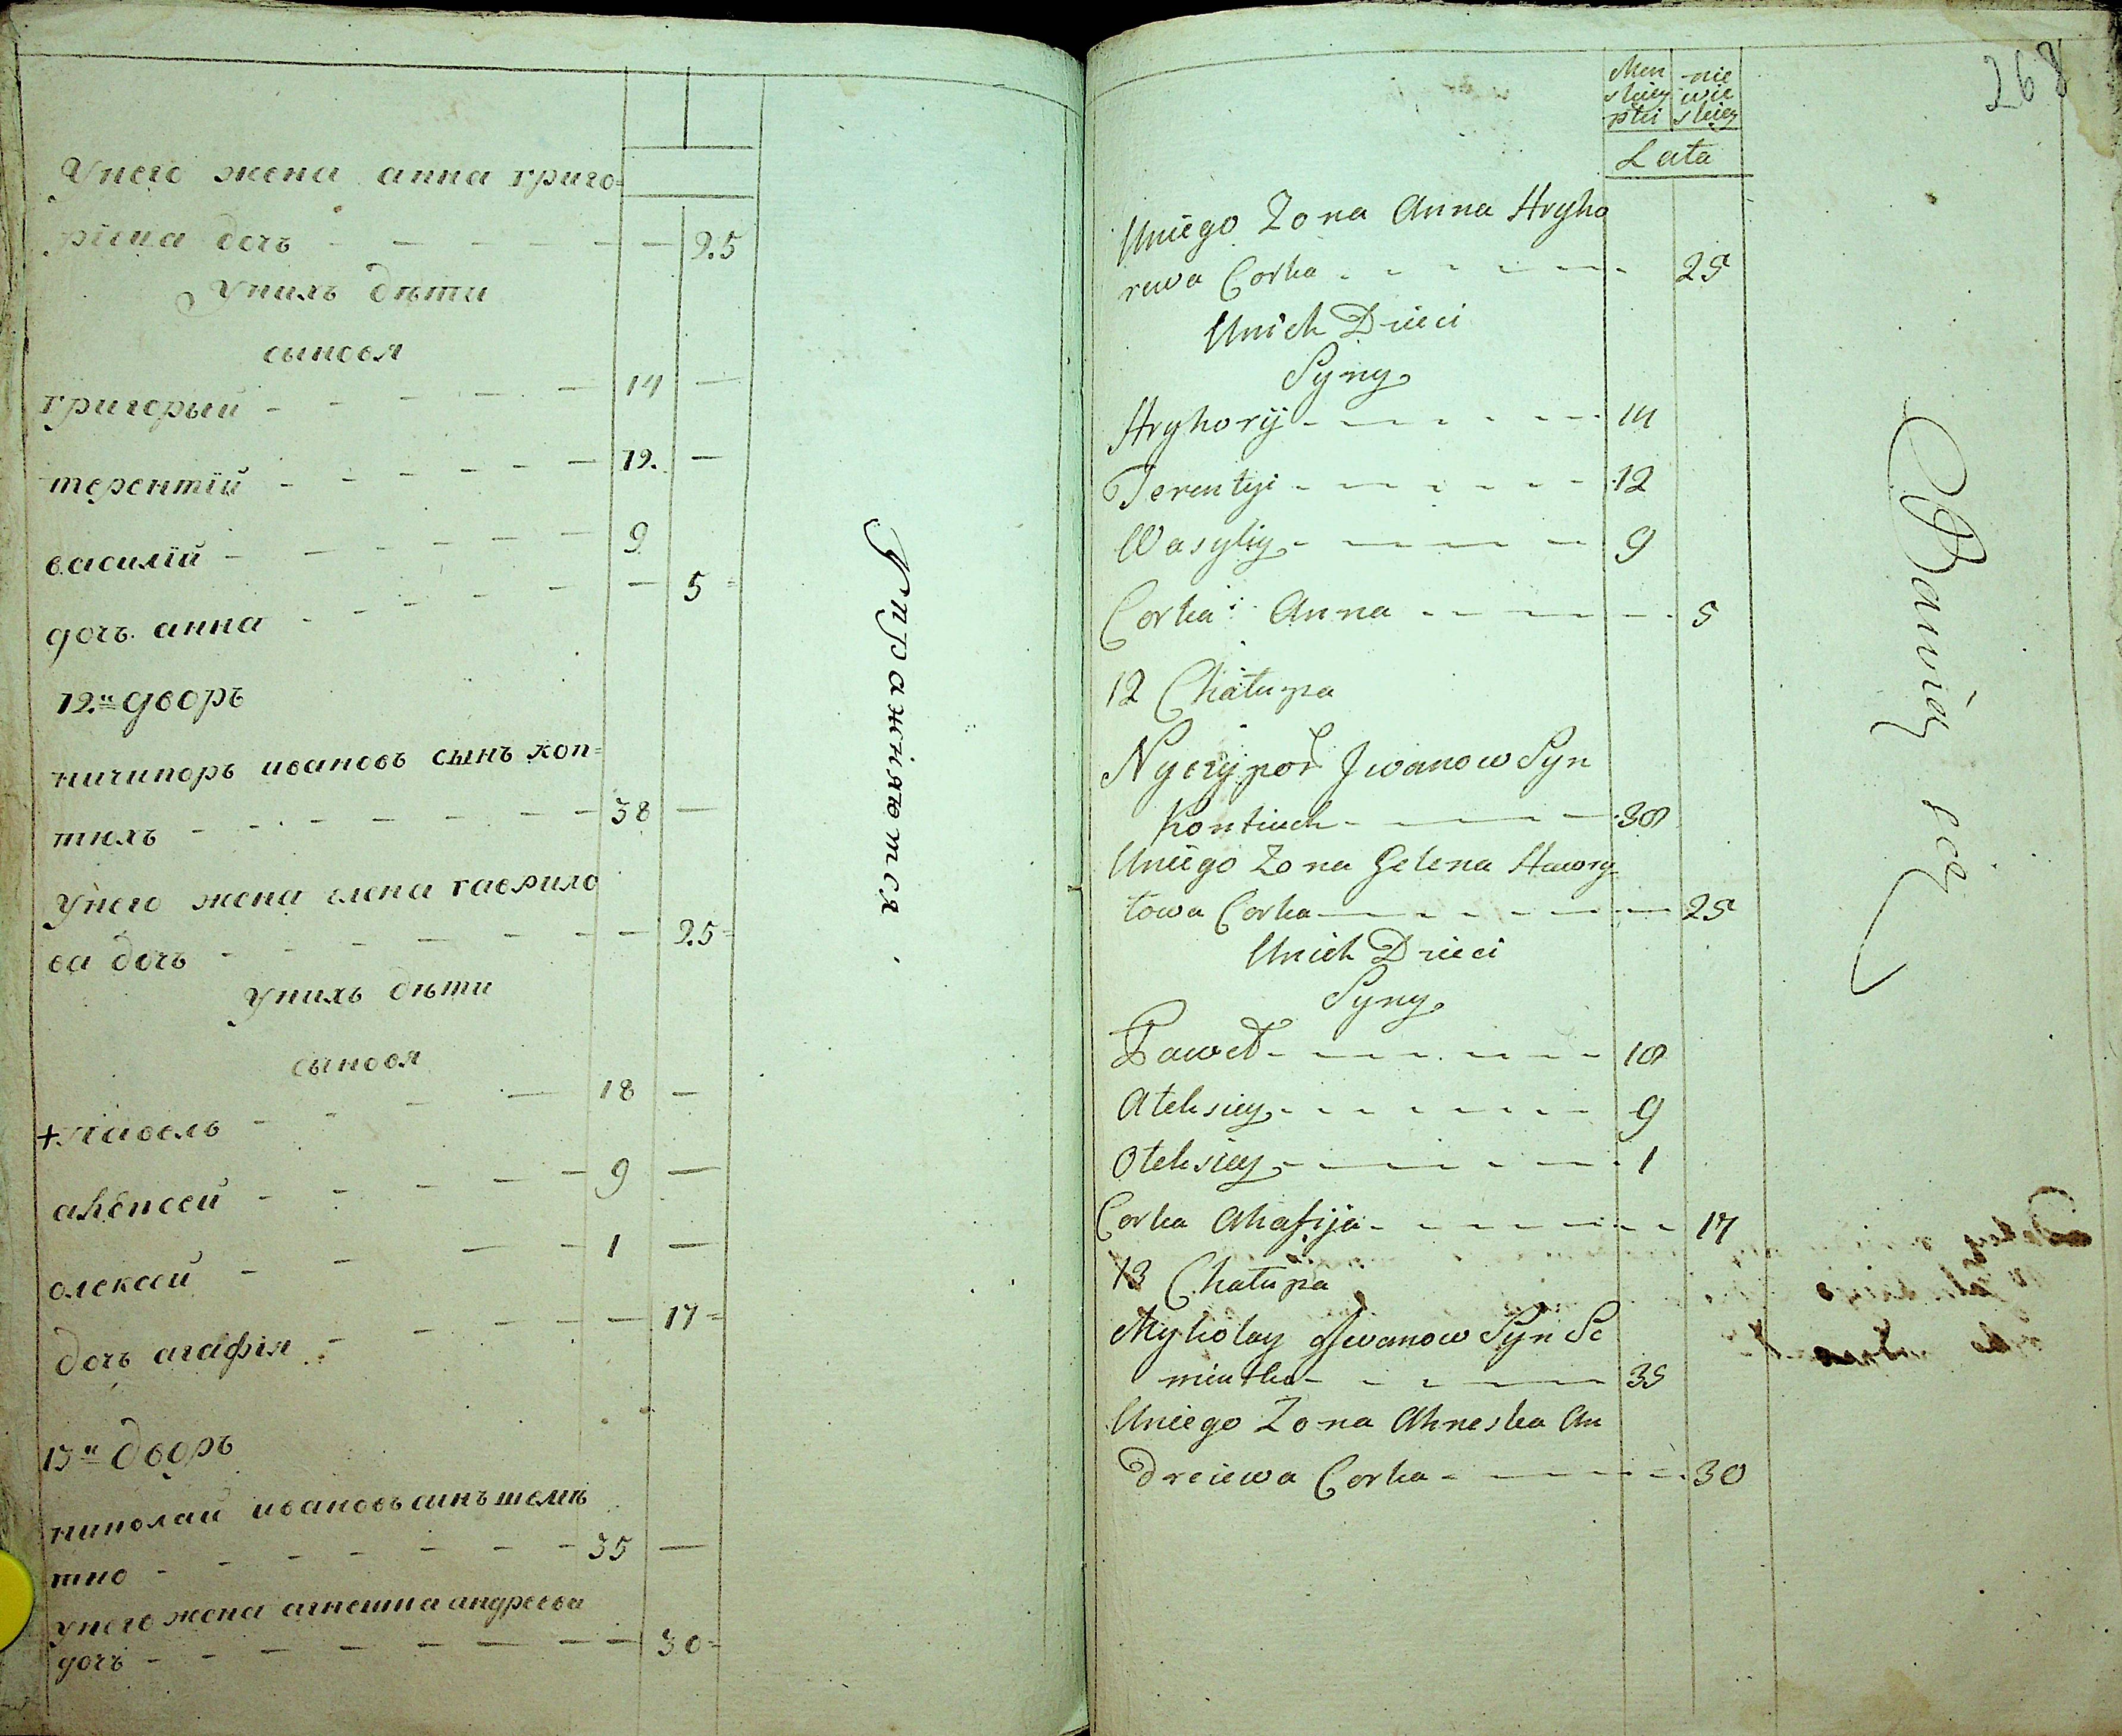 У него жена анна григо=
риева дочъ - - - - - - 25
У нихъ дѣти
сыновя
григорый - - - - - 14 -
терентій - - - - - - 12. -
василій - - - - - - 9
дочъ анна - - - - - - 5 =
12.й дворъ
ничипоръ ивановъ сынъ коп=
тюхъ - - - - - - - 38 -
У него жена елена гаврило
ва дочъ - - - - - - - 25 =
У нихъ дѣти
сыновя
+ павелъ - - - - 18 -
алексей - - - - - 9 -
олексей - - - - 1 -
дочъ агафія - - - - - - 17 =
13й дворъ
николай ивановъ синъ шемѣ
тко - - - - - - 35 -
У него жена агнешка андреева
дочъ - - - - - - - 30 =
Упражняются
268
Men
skiey
płci
nie
wie
skiey
Lata
Uniego Zona Anna Hryho
rewa Corka - - - - - - 25
Unich Dzieci
Syny
Hryhorij - - - - - - 14
Terentyi - - - - - - 12
Wasyliy - - - - 9
Corka Anna - - - - - - 5
12 Chałupa
Nyczypor Jwanow Syn
Kontiuch - - - 38
Uniego Zona Helena Hawry
łowa Corka - - - - - - 25
Unich Dzieci
Syny
Paweł - - - - - - 18
Alehsiey - - - - - - - 9
Olehsiey - - - - - 1
Corka Ahafija - - - - - - - 17
13 Chałupa
Mykołay Jwanow Syn Se
mietko - - - - - 35
Uniego Zona Ahneska An
dreiewa Corka - - - - - 30
Bawią się